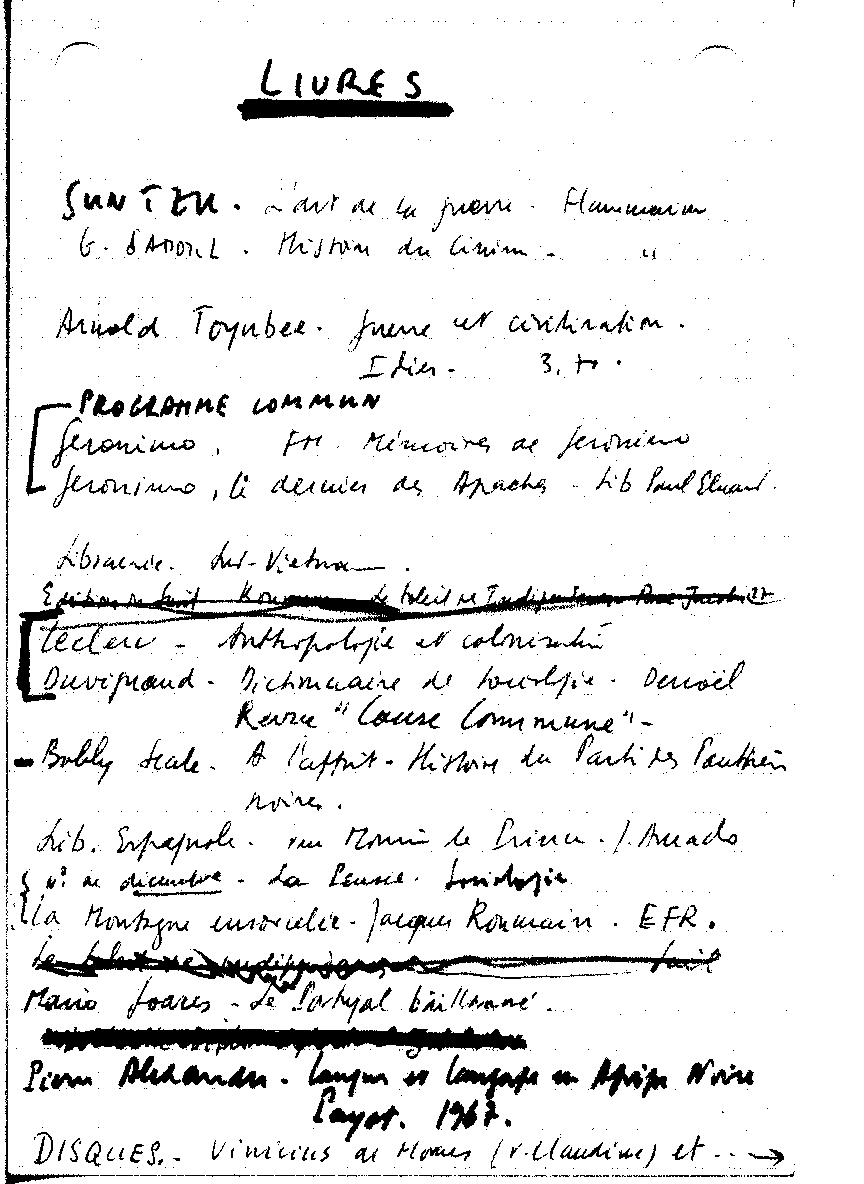 LIVRES
SUN TZU. L'art de la guerre. Flammarion
G. SADOUL. Histoire du Cinéma. "
Arnold Toynbee. guerre et civilisation.
Idées. 3,
PROGRAMME COMMUN
Geronimo, FM Mémoires de Geronimo
Geronimo, le dernier des Apaches - Lib Paul Eluard.
Librairie. Sud-Vietnam.
Edition du Seuil Le Soleil des Indépendances
Leclerc - Anthropologie et colonisation
Duvignaud - Dictionnaire de sociologie. Denoël
Revue "Cause Commune" -
- Bobby Seale. A l'affut - Histoire du Parti des Panthères
noires.
Lib. Espagnole. rue Monsieur le Prince. J. Amado
n° de décembre - La Pensée. Sociologie
La Montagne ensorcelée - Jacques Roumain. EFR.
Le Seuil
Mario Soares - Le Portugal bâillonné.
Pierre Alexandre. langues et langage en Afrique Noire
Payot. 1967.
DISQUES. - Vinicius de Moraes (v. Claudine) et ... →